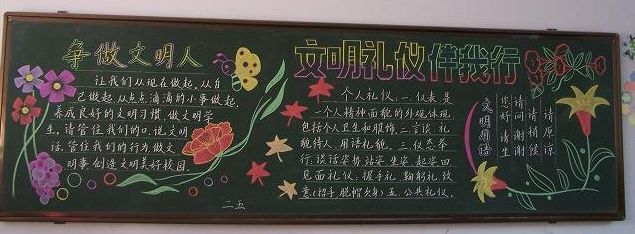 争做文明人
让我们从现在做起,从自
己做起,从点点滴滴的小事做起,
养成良好的文明习惯,做文明学
生,请管住我们的口,说文明
话,管住我们的行为,做文
明事,创造文明美好校园。
二五
文明礼仪伴我行
个人礼仪:一、仪表是
一个人精神面貌的外观体现,
包括个人卫生和服饰,二、言谈:礼
貌待人,用语礼貌。三、仪态举
行:谈话姿势,站姿,坐姿,起姿四、
见面礼仪:握手礼,鞠躬礼,致
意(招手,脱帽,欠身)五、公共礼仪。
文明用语
您好 请坐
请问 谢谢
请稍候
请原谅